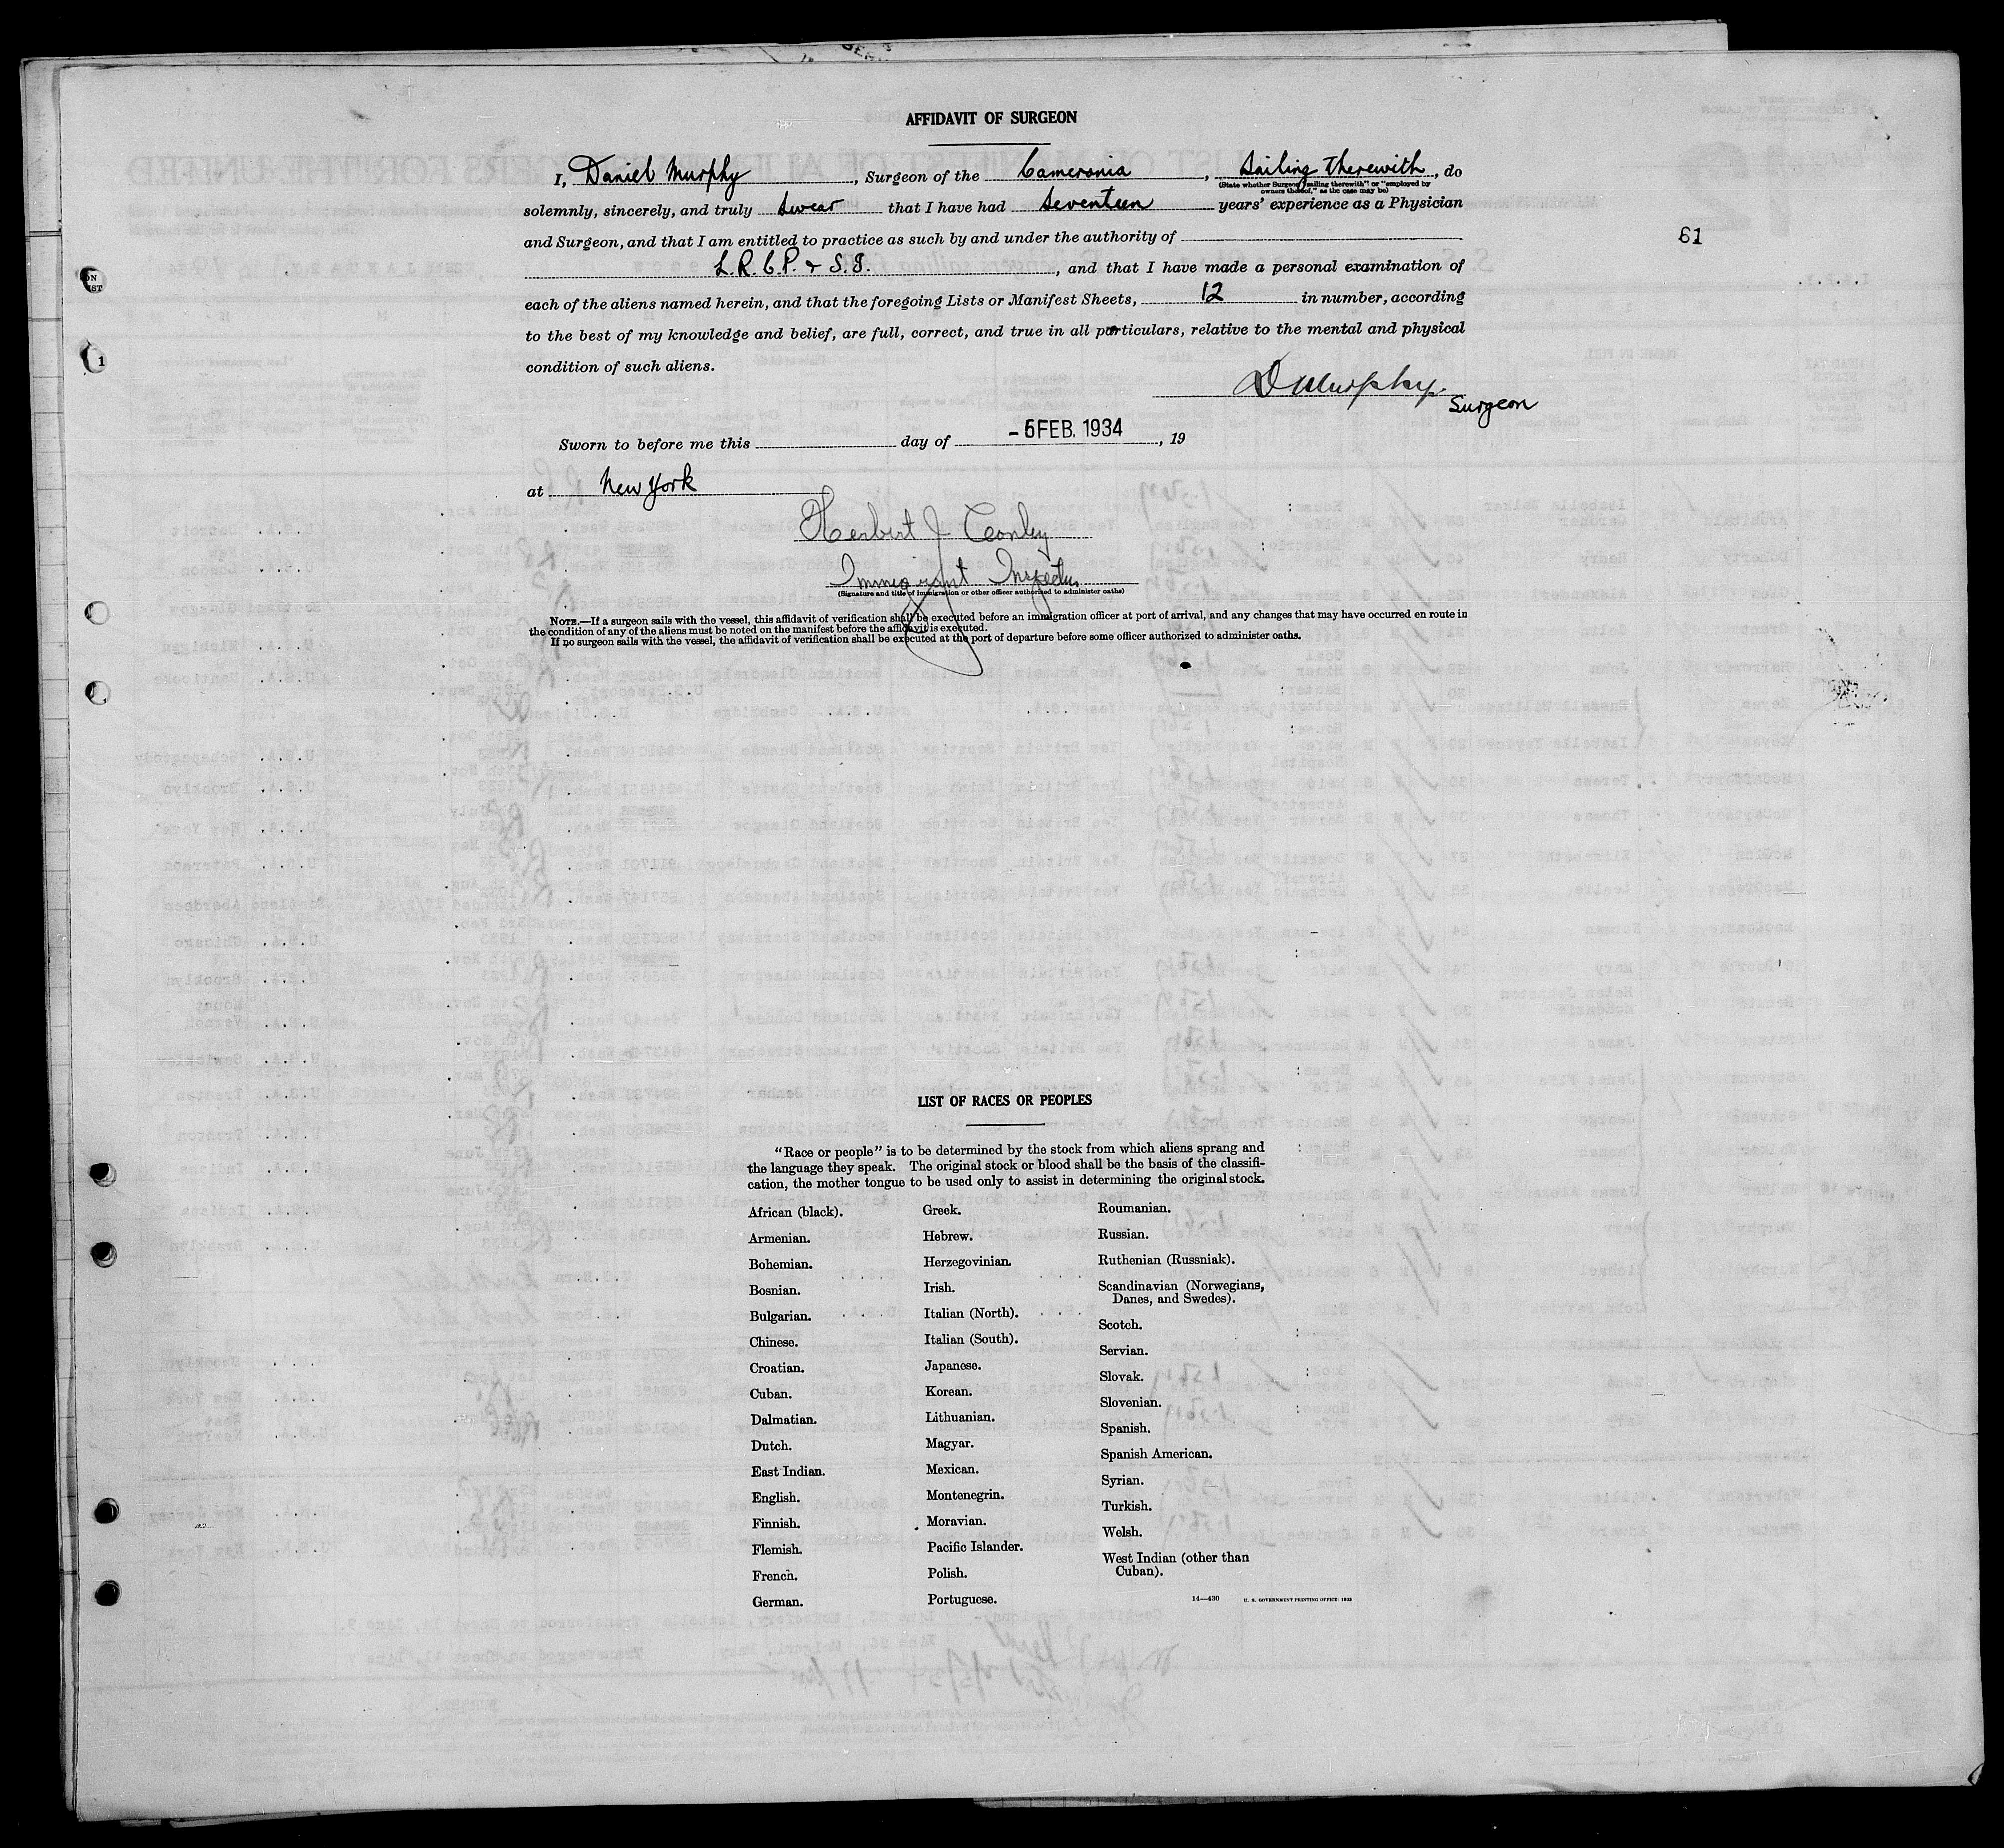 AFFIDAVIT OF SURGEON
I, Daniel Murphy, Surgeon of the Cameronia, Sailing Therewith, do
(State whether Surgeon "sailing therewith" or "employed by
owners thereof," as the case may be)
solemnly, sincerely, and truly swear that I have had seventeen years' experience as a Physician
and Surgeon, and that I am entitled to practice as such by and under the authority of
61
L.R.C.P. & S.I., and that I have made a personal examination of
each of the aliens named herein, and that the foregoing Lists or Manifest Sheets, 12 in number, according
to the best of my knowledge and belief, are full, correct, and true in all particulars, relative to the mental and physical
condition of such aliens.
D Murphy.
Surgeon
Sworn to before me this day of -5 FEB. 1934, 19
at New York
Herbert J
Immigrant Inspector
(Signature and title of immigration or other officer authorized to administer oaths)
NOTE.—If a surgeon sails with the vessel, this affidavit of verification shall be executed before an immigration officer at port of arrival, and any changes that may have occurred en route in
the condition of any of the aliens must be noted on the manifest before the affidavit is executed.
If no surgeon sails with the vessel, the affidavit of verification shall be executed at the port of departure before some officer authorized to administer oaths.
LIST OF RACES OR PEOPLES
"Race or people" is to be determined by the stock from which aliens sprang and
the language they speak. The original stock or blood shall be the basis of the classifi-
cation, the mother tongue to be used only to assist in determining the original stock.
African (black).
Armenian.
Bohemian.
Bosnian.
Bulgarian.
Chinese.
Croatian.
Cuban.
Dalmatian.
Dutch.
East Indian.
English.
Finnish.
Flemish.
French.
German.
Greek.
Hebrew.
Herzegovinian.
Irish.
Italian (North).
Italian (South).
Japanese.
Korean.
Lithuanian.
Magyar.
Mexican.
Montenegrin.
Moravian.
Pacific Islander.
Polish.
Portuguese.
Roumanian.
Russian.
Ruthenian (Russniak).
Scandinavian (Norwegians,
Danes, and Swedes).
Scotch.
Servian.
Slovak.
Slovenian.
Spanish.
Spanish American.
Syrian.
Turkish.
Welsh.
West Indian (other than
Cuban).
14—430 U. S. GOVERNMENT PRINTING OFFICE: 1933